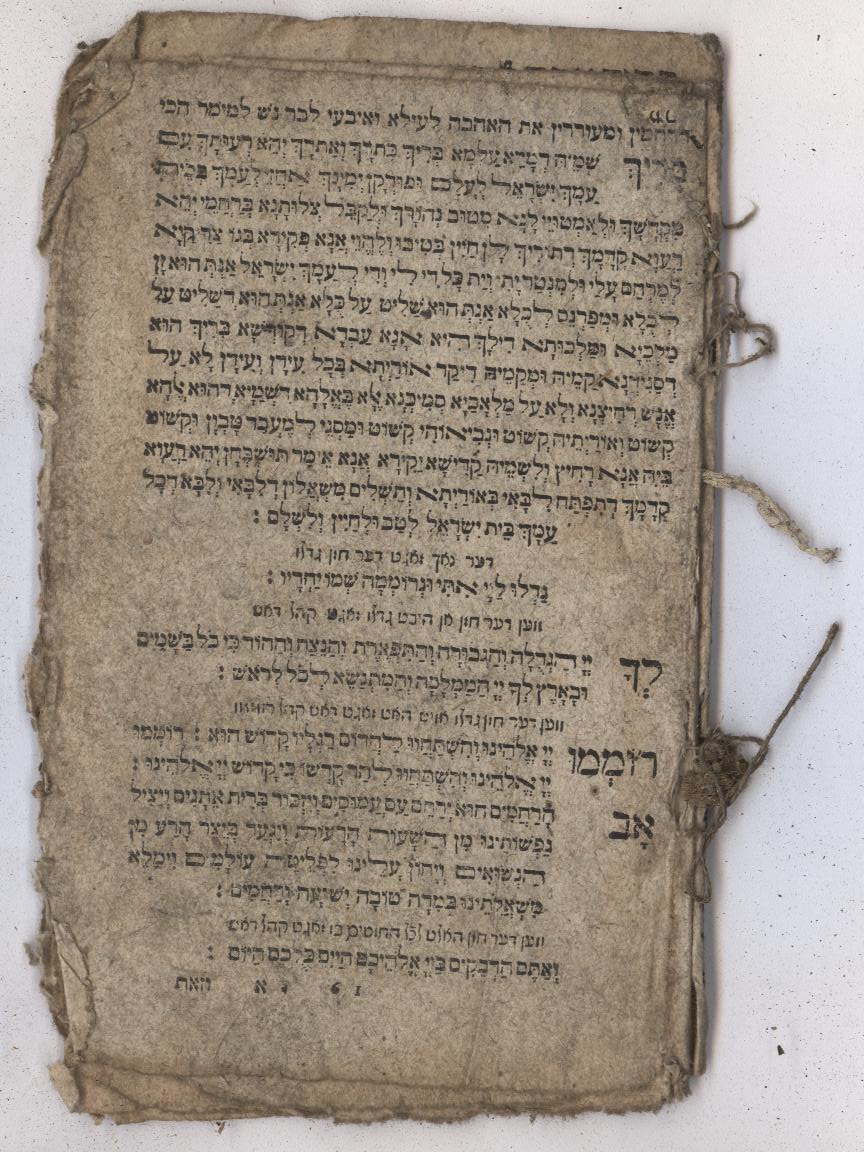 דרחמין ומעוררין את האהבה לעילא ואיבעי לבר נש למימר הכי
בריך שְׁמֵיהּ דְמָרֵא עָלְמָא בְּרִיךְ כִּתְרָךְ וְאַתְרָךְ יְהֵא רְעוּתָךְ עִם
עַמָּךְ יִשְׂרָאֵל לְעָלַם וּפוּרְקַן יְמִינָךְ אַחֲזֵי לְעַמָּךְ בְּבֵית
מַקְדְּשָׁךְ וּלְאַמְטוּיֵי לָנָא מִטּוּב נְהוֹרָךְ וּלְקַבֵּל צְלוֹתָנָא בְּרַחֲמִין יְהֵא
רַעֲוָא קֳדָמָךְ דְּתוֹרִיךְ לָן חַיִּין בְּטִיבוּ וְלֶהֱוֵי אֲנָא פְּקִידָא בְּגוֹ צַדִּקַיָּא
לְמִרְחַם עָלַי וּלְמִנְטַר יָתִי וְיַת כָּל דִּי לִי וְדִי לְעַמָּךְ יִשְׂרָאֵל אַנְתְּ הוּא זָן
לְכֹלָּא וּמְפַרְנֵס לְכֹלָּא אַנְתְּ הוּא שַׁלִּיט עַל כֹּלָּא אַנְתְּ הוּא דְּשַׁלִּיט עַל
מַלְכַיָּא וּמַלְכוּתָא דִּילָךְ הִיא אֲנָא עַבְדָּא דְקוּדְשָׁא בְּרִיךְ הוּא
דְּסָגִידְנָא קַמֵּיהּ וּמִקַּמֵּיהּ דִּיקַר אוֹרַיְתֵיהּ בְּכָל עִידָּן וְעִידָּן לָא עַל
אֱנָשׁ רָחִיצְנָא וְלָא עַל בַּר אֱלָהִין סָמִיכְנָא אֶלָּא בֶּאֱלָהָא דִשְׁמַיָּא דְּהוּא אֱלָהָא
קְשׁוֹט וְאוֹרַיְתֵיהּ קְשׁוֹט וּנְבִיאוֹהִי קְשׁוֹט וּמַסְגֵּי לְמֶעְבַּד טַבְוָן וּקְשׁוֹט
בֵּיהּ אֲנָא רָחִיץ וְלִשְׁמֵיהּ קַדִּישָׁא יַקִּירָא אֲנָא אֵימַר תּוּשְׁבְּחָן יְהֵא רַעֲוָא
קֳדָמָךְ דְּתִפְתַּח לִבָּאִי בְּאוֹרַיְתָא וְתַשְׁלִים מִשְׁאֲלִין דְּלִבָּאִי וְלִבָּא דְכָל
עַמָּךְ בֵּית יִשְׂרָאֵל לְטַב וּלְחַיִּין וְלִשְׁלָם :
דער נאך זאגט דער חזן גדלו
גַּדְּלוּ לַיְיָ אִתִּי וּנְרוֹמְמָה שְׁמוֹ יַחְדָּיו :
ווען דער חזן אן היבט גדלו זאגט קהל דאש
לְךָ יְיָ הַגְּדֻלָּה וְהַגְּבוּרָה וְהַתִּפְאֶרֶת וְהַנֵּצַח וְהַהוֹד כִּי כֹל בַּשָּׁמַיִם
וּבָאָרֶץ לְךָ יְיָ הַמַּמְלָכָה וְהַמִּתְנַשֵּׂא לְכֹל לְרֹאשׁ :
ווען דער חזן גדלו אויש האט זאגט דאש קהל רוממו
רוֹמְמוּ יְיָ אֱלֹהֵינוּ וְהִשְׁתַּחֲווּ לַהֲדוֹם רַגְלָיו קָדוֹשׁ הוּא : רוֹמְמוּ
יְיָ אֱלֹהֵינוּ וְהִשְׁתַּחֲווּ לְהַר קָדְשׁוֹ כִּי קָדוֹשׁ יְיָ אֱלֹהֵינוּ :
אַב הָרַחֲמִים הוּא יְרַחֵם עַם עֲמוּסִים וְיִזְכּוֹר בְּרִית אֵתָנִים וְיַצִּיל
נַפְשׁוֹתֵינוּ מִן הַשָּׁעוֹת הָרָעוֹת וְיִגְעַר בְּיֵצֶר הָרַע מִן
הַנְּשׂוּאִים וְיָחוֹן עָלֵינוּ לִפְלֵיטַת עוֹלָמִים וִימַלֵּא
מִשְׁאֲלֹתֵינוּ בְּמִדָּה טוֹבָה יְשׁוּעָה וְרַחֲמִים :
ווען דער חזן האט זאגט קהל דאש
וְאַתֶּם הַדְּבֵקִים בַּיְיָ אֱלֹהֵיכֶם חַיִּים כֻּלְּכֶם הַיּוֹם :
וזאת